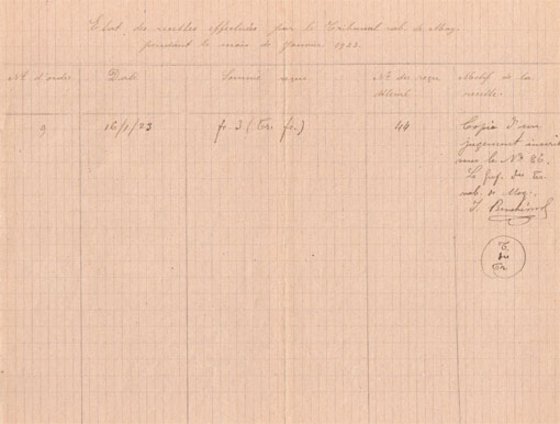 Etat des recettes effectuées par le Tribunal rab. de Mog.
pendant le mois de Janvier 1923.
No d'ordre Date Somme reçue No du reçu Motif de la
recette.
9 16/1/23 fr. 3 (Tr. fr.) 44 Copie d'un
jugement inscrit
sur le No 86.
Le Gref. du Tr.
rab. de Mog.
T.
du
Tr.